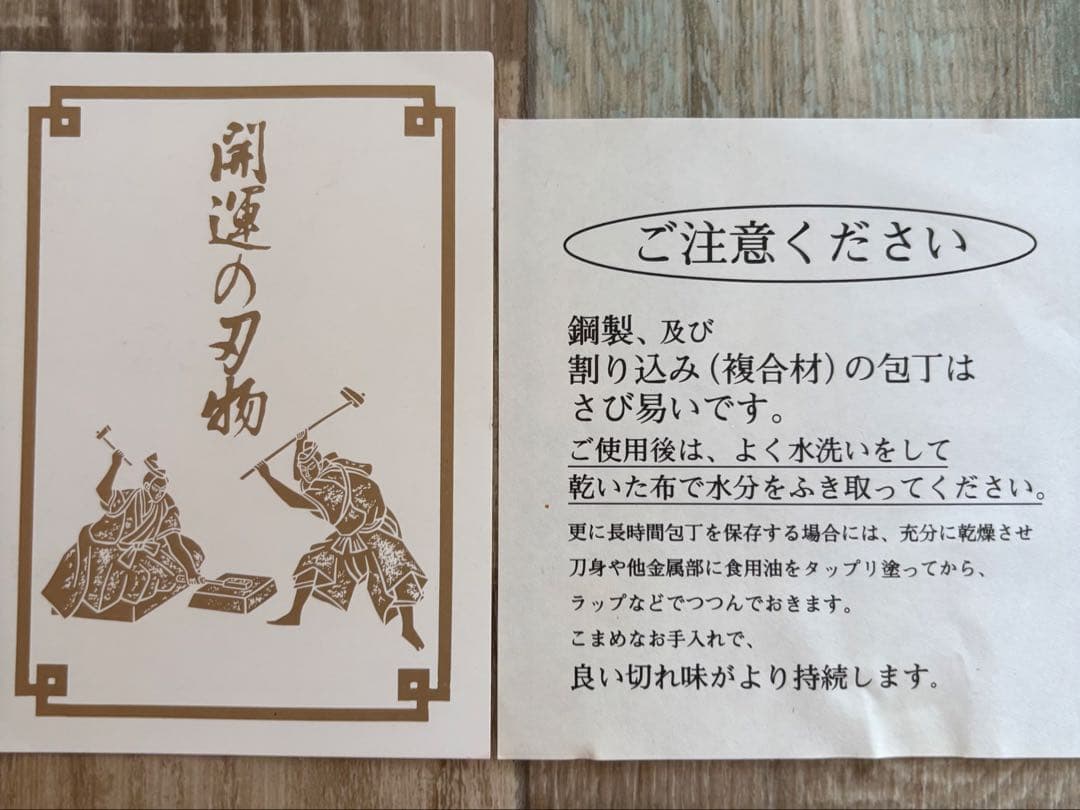 開運の刃物
ご注意ください
鋼製、及び
割り込み(複合材)の包丁は
さび易いです。
ご使用後は、よく水洗いをして
乾いた布で水分をふき取ってください。
更に長時間包丁を保存する場合には、充分に乾燥させ
刀身や他金属部に食用油をタップリ塗ってから、
ラップなどでつつんでおきます。
こまめなお手入れで、
良い切れ味がより持続します。